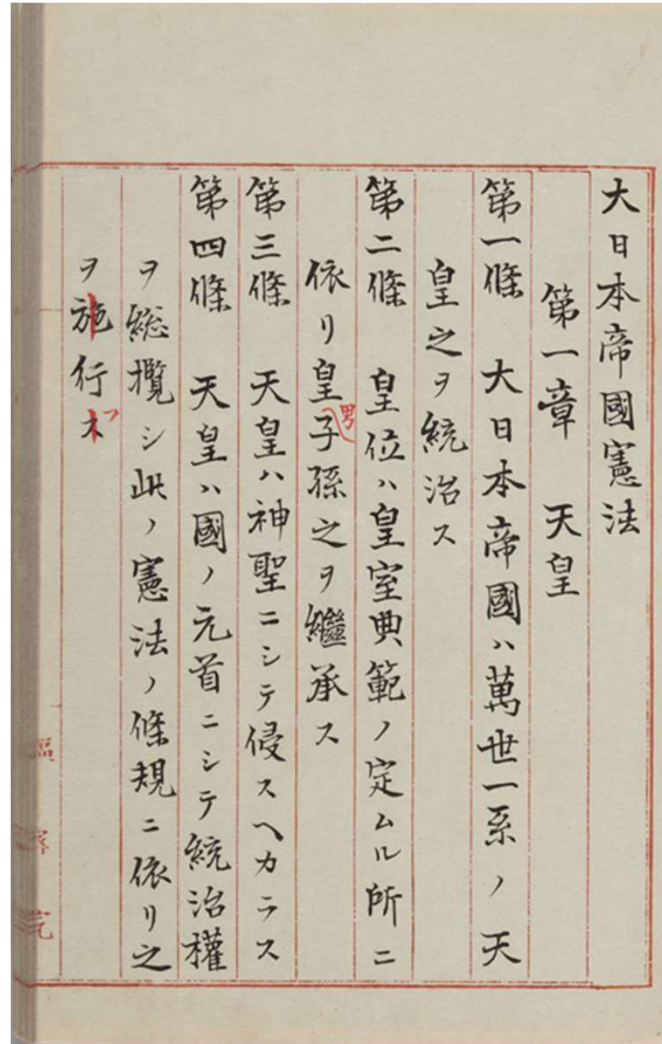 大日本帝國憲法
第一章 天皇
第一條 大日本帝國ハ萬世一系ノ天
皇之ヲ統治ス
第二條 皇位ハ皇室典範ノ定ムル所ニ
依リ皇男子孫之ヲ繼承ス
第三條 天皇ハ神聖ニシテ侵スヘカラス
第四條 天皇ハ國ノ元首ニシテ統治權
ヲ総攬シ此ノ憲法ノ條規ニ依リ之
ヲ施行ス フ
樞密院